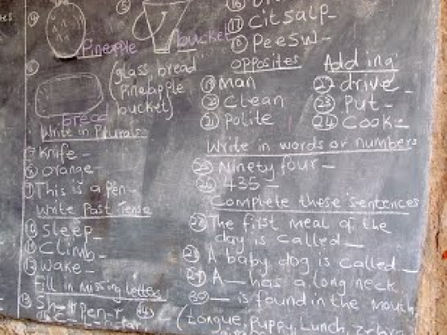 Pineapple
bucket
(glass, bread
pineapple
bucket)
bread
Write in Plurals
Knife -
Orange -
This is a pen -
Write Past Tense
Sleep -
Climb -
Wake -
Fill in missing letters
Sh-
Pen-r
⑰ Citsalp-
Peesw-
Opposites
⑲ Man
Clean
㉑ Polite
Adding
drive -
㉓ Put -
㉔ Cook -
Write in words or numbers
㉕ Ninety four -
㉖ 435 -
Complete these sentences
㉗ The first meal of the
day is called _
A baby dog is called _
A _ has a long neck.
㉚ _ is found in the mouth,
(tongue, Puppy, Lunch,